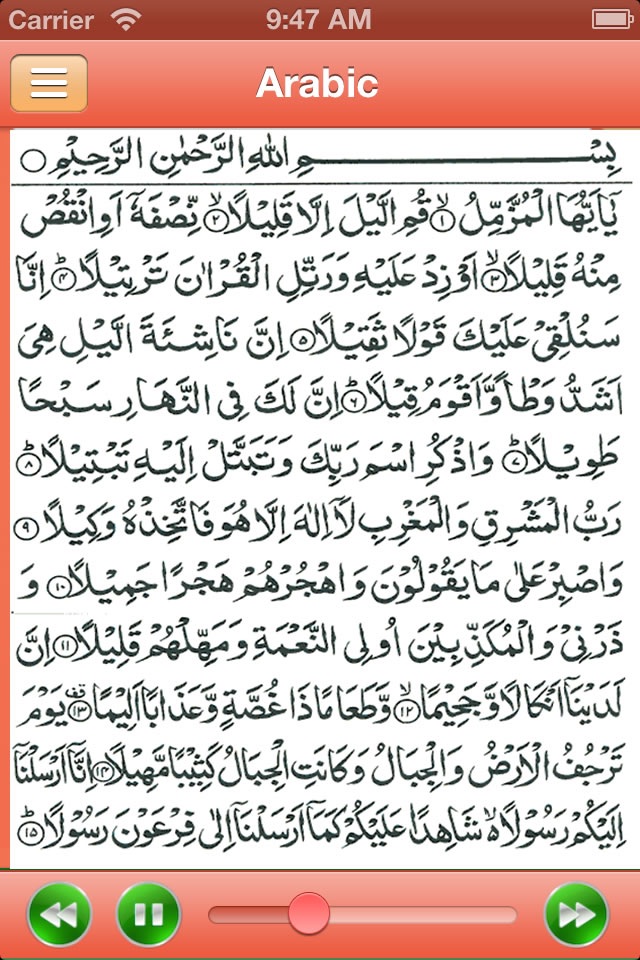 Carrier 9:47 AM
Arabic
بِسْمِ اللهِ الرَّحْمٰنِ الرَّحِيْمِ ○
يٰٓاَيُّهَا الْمُزَّمِّلُ ۙ﴿۱﴾ قُمِ الَّيْلَ اِلَّا قَلِيْلًا ۙ﴿۲﴾ نِّصْفَهٗٓ اَوِ انْقُصْ
مِنْهُ قَلِيْلًا ۙ﴿۳﴾ اَوْ زِدْ عَلَيْهِ وَرَتِّلِ الْقُرْاٰنَ تَرْتِيْلًا ؕ﴿۴﴾ اِنَّا
سَنُلْقِيْ عَلَيْكَ قَوْلًا ثَقِيْلًا ﴿۵﴾ اِنَّ نَاشِئَةَ الَّيْلِ هِيَ
اَشَدُّ وَطْاً وَّاَقْوَمُ قِيْلًا ؕ﴿۶﴾ اِنَّ لَكَ فِي النَّهَارِ سَبْحًا
طَوِيْلًا ؕ﴿۷﴾ وَاذْكُرِ اسْمَ رَبِّكَ وَتَبَتَّلْ اِلَيْهِ تَبْتِيْلًا ؕ﴿۸﴾
رَبُّ الْمَشْرِقِ وَالْمَغْرِبِ لَآ اِلٰهَ اِلَّا هُوَ فَاتَّخِذْهُ وَكِيْلًا ﴿۹﴾
وَاصْبِرْ عَلٰى مَا يَقُوْلُوْنَ وَاهْجُرْهُمْ هَجْرًا جَمِيْلًا ﴿۱۰﴾ وَ
ذَرْنِيْ وَالْمُكَذِّبِيْنَ اُولِي النَّعْمَةِ وَمَهِّلْهُمْ قَلِيْلًا ﴿۱۱﴾ اِنَّ
لَدَيْنَآ اَنْكَالًا وَّجَحِيْمًا ۙ﴿۱۲﴾ وَّطَعَامًا ذَا غُصَّةٍ وَّعَذَابًا اَلِيْمًا ۗ﴿۱۳﴾ يَوْمَ
تَرْجُفُ الْاَرْضُ وَالْجِبَالُ وَكَانَتِ الْجِبَالُ كَثِيْبًا مَّهِيْلًا ﴿۱۴﴾ اِنَّآ اَرْسَلْنَآ
اِلَيْكُمْ رَسُوْلًا ۙ۬ شَاهِدًا عَلَيْكُمْ كَمَآ اَرْسَلْنَآ اِلٰى فِرْعَوْنَ رَسُوْلًا ؕ﴿۱۵﴾